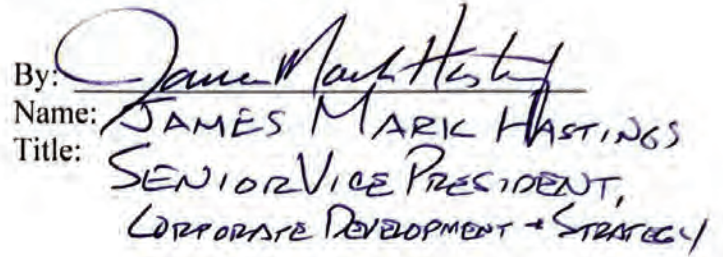 By: James Mark Hastings
Name: JAMES MARK HASTINGS
Title: SENIOR VICE PRESIDENT,
CORPORATE DEVELOPMENT + STRATEGY